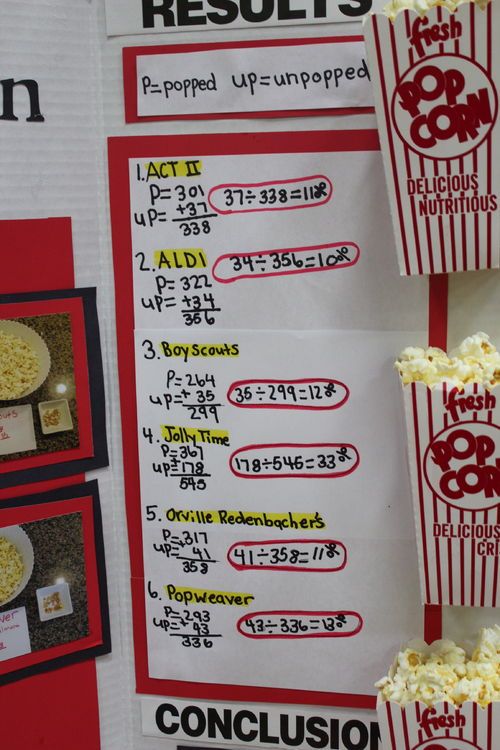 RESULTS
n
P=popped up=unpopped
1. ACT II
P= 301
up= +37
338
37÷338=11%
2. ALDI
P= 322
up= +34
356
34÷356=10%
3. Boy Scouts
P= 264
up= + 35
299
35÷299=12%
4. Jolly Time
P= 367
up= +178
545
178÷545=33%
5. Orville Redenbacher's
P= 317
up= 41
358
41÷358=11%
6. Popweaver
P= 293
up= + 43
336
43÷336=13%
CONCLUSION
fresh
POP
CORN
DELICIOUS
NUTRITIOUS
fresh
POP
COR
DELICIOUS
CRI
fresh